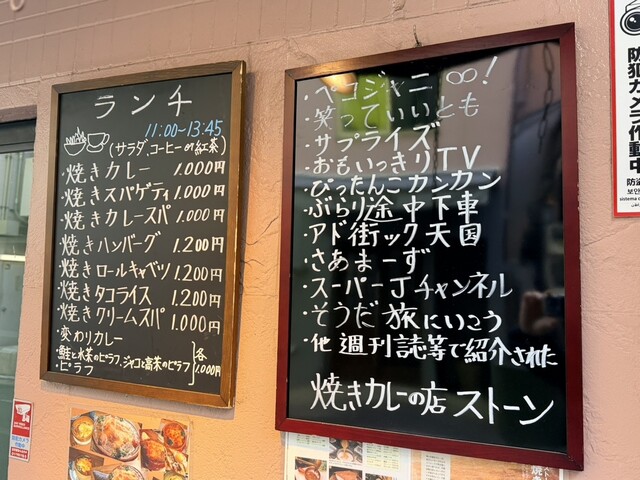 ランチ
11:00~13:45
(サラダ、コーヒーor紅茶)
・焼きカレー 1.000円
・焼きスパゲティ 1.000円
・焼きカレースパ 1.000円
・焼きハンバーグ 1.200円
・焼きロールキャベツ 1.200円
・焼きタコライス 1.200円
・焼きクリームスパ 1.000円
・変わりカレー
・鮭と水茶のピラフ、ジャコと高茶のピラフ
・ピラフ
各1.000円
・ペコジャニ∞!
・笑っていいとも
・サプライズ
・おもいっきりTV
・ぴったんこカンカン
・ぶらり途中下車
・アド街ック天国
・さあまーず
・スーパーJチャンネル
・そうだ旅にいこう
・他週刊誌等で紹介された
焼きカレーの店ストーン
防犯カメラ作動中